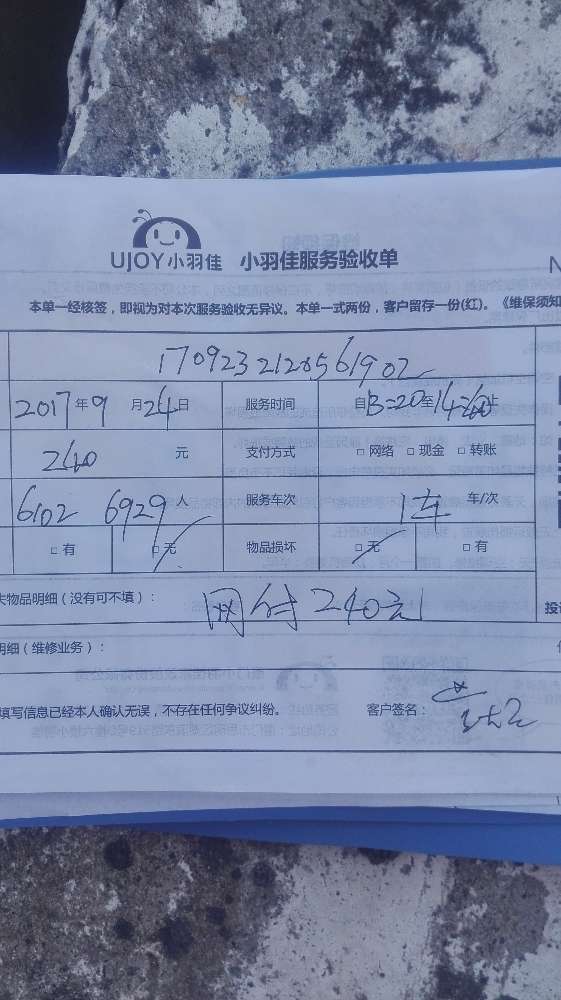 UJOY小羽佳 小羽佳服务验收单
本单一经核签，即视为对本次服务验收无异议。本单一式两份，客户留存一份(红)。《维保须知
1709232128561902
2017年9月24日 服务时间 自13=20至14=60止
240元 支付方式 □网络 □现金 □转账
6102 6929人 服务车次 1车 车/次
□有 □无 物品损坏 □无 □有
物品明细（没有可不填）： 投
网付240元
明细（维修业务）：
填写信息已经本人确认无误，不存在任何争议纠纷。 客户签名：